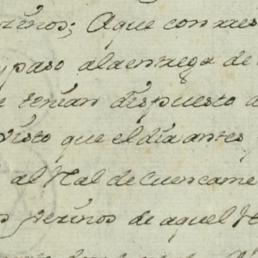 vezinos; A que con
paso ala entrega de
tenian dispuesto
visto que el dia antes
al Rl. de Cuencame
vezinos de aquel